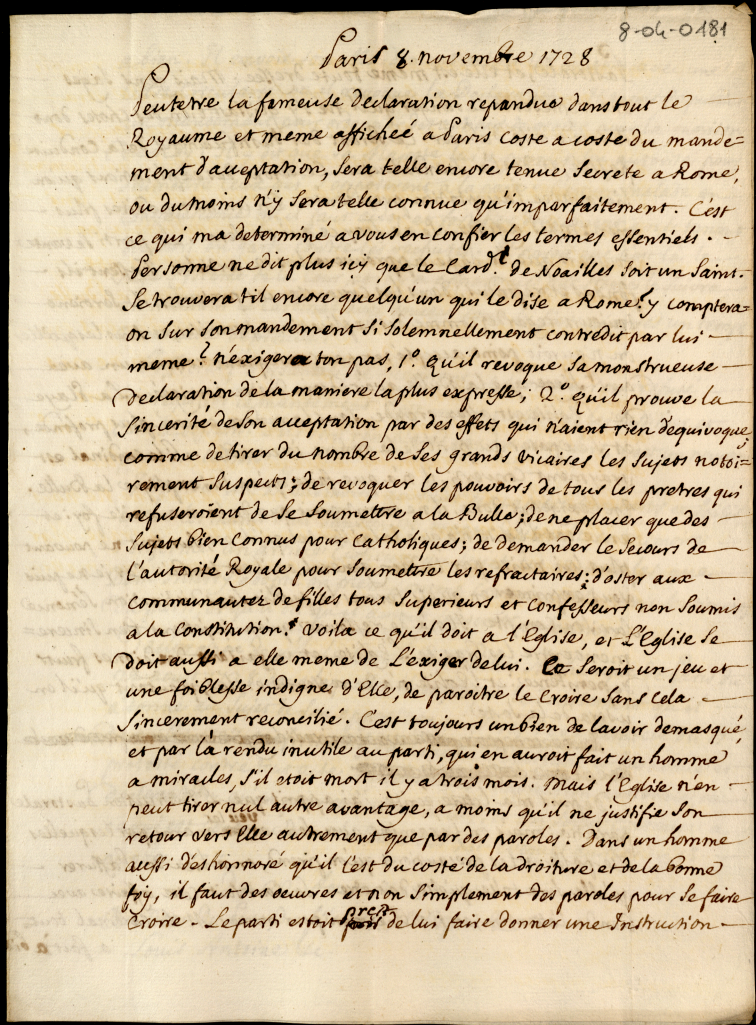 8-04-0181
Paris 8. novembre 1728
Peutetre la fameuse declaration repandue dans tout le
Royaume et meme afficheé a Paris coste a coste du mande=
ment d'acceptation, sera telle encore tenue secrete a Rome,
ou du moins n'y sera telle connue qu'imparfaitement. C'est
ce qui ma determiné a vous en confier les termes essentiels.
Personne ne dit plus icy que le Card.l de Noailles soit un Saint.
Se trouvera til encore quelqu'un qui le dise a Rome? y comptera=
on sur son mandement si solemnellement contredit par lui
meme? n'exigera ton pas, 1.o qu'il revoque sa monstrueuse
declaration de la maniere la plus expresse; 2.o qu'il prouve la
sincerité de son acceptation par des effets qui n'aient rien d'equivoque,
comme de tirer du nombre de ses grands vicaires les sujets notoi=
rement suspects; de revoquer les pouvoirs de tous les pretres qui
refuseroient de se soumettre a la Bulle; de ne placer que des
sujets bien connus pour catholiques; de demander le secours de
l'autorité Royale pour soumettre les refractaires; d'oster aux
communautez de filles tous superieurs et confesseurs non soumis
a la constitution? voila ce qu'il doit a l'Eglise, et L'Eglise se
doit aussi a elle meme de L'exiger de lui. Ce seroit un jeu et
une foiblesse indigne d'Elle, de paroitre le croire sans cela
sincerement reconcilié. C'est toujours un bien de lavoir demasqué,
et par là rendu inutile au parti, qui en auroit fait un homme
a miracles, s'il etoit mort il y a trois mois. mais l'Eglise n'en
peut tirer nul autre avantage, a moins qu'il ne justifie son
retour vers Elle autrement que par des paroles. Dans un homme
aussi deshonnoré qu'il l'est du costé de la droiture et de la bonne
foy, il faut des oeuvres et non simplement des paroles pour se faire
croire. Le parti estoit prest de lui faire donner une Instruction